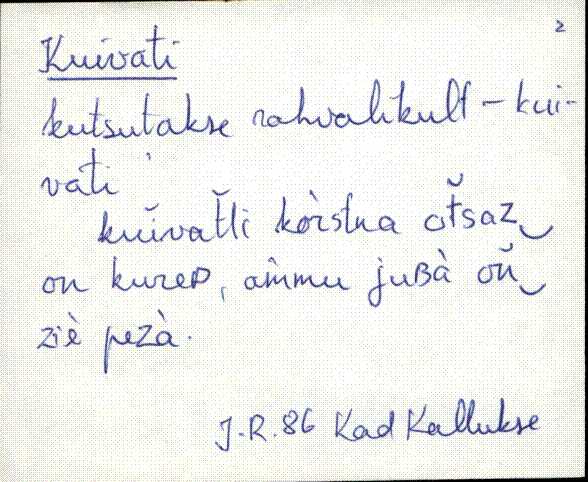 2
Kuivati
kutsutakse rahvalikult – kui-
vati
kuĭvat̆li kòrstna ot̆saz‿
on kureᴅ, aìmmu juʙà oň‿
ziè pezà.
J.R. 86 Kad Kallukse